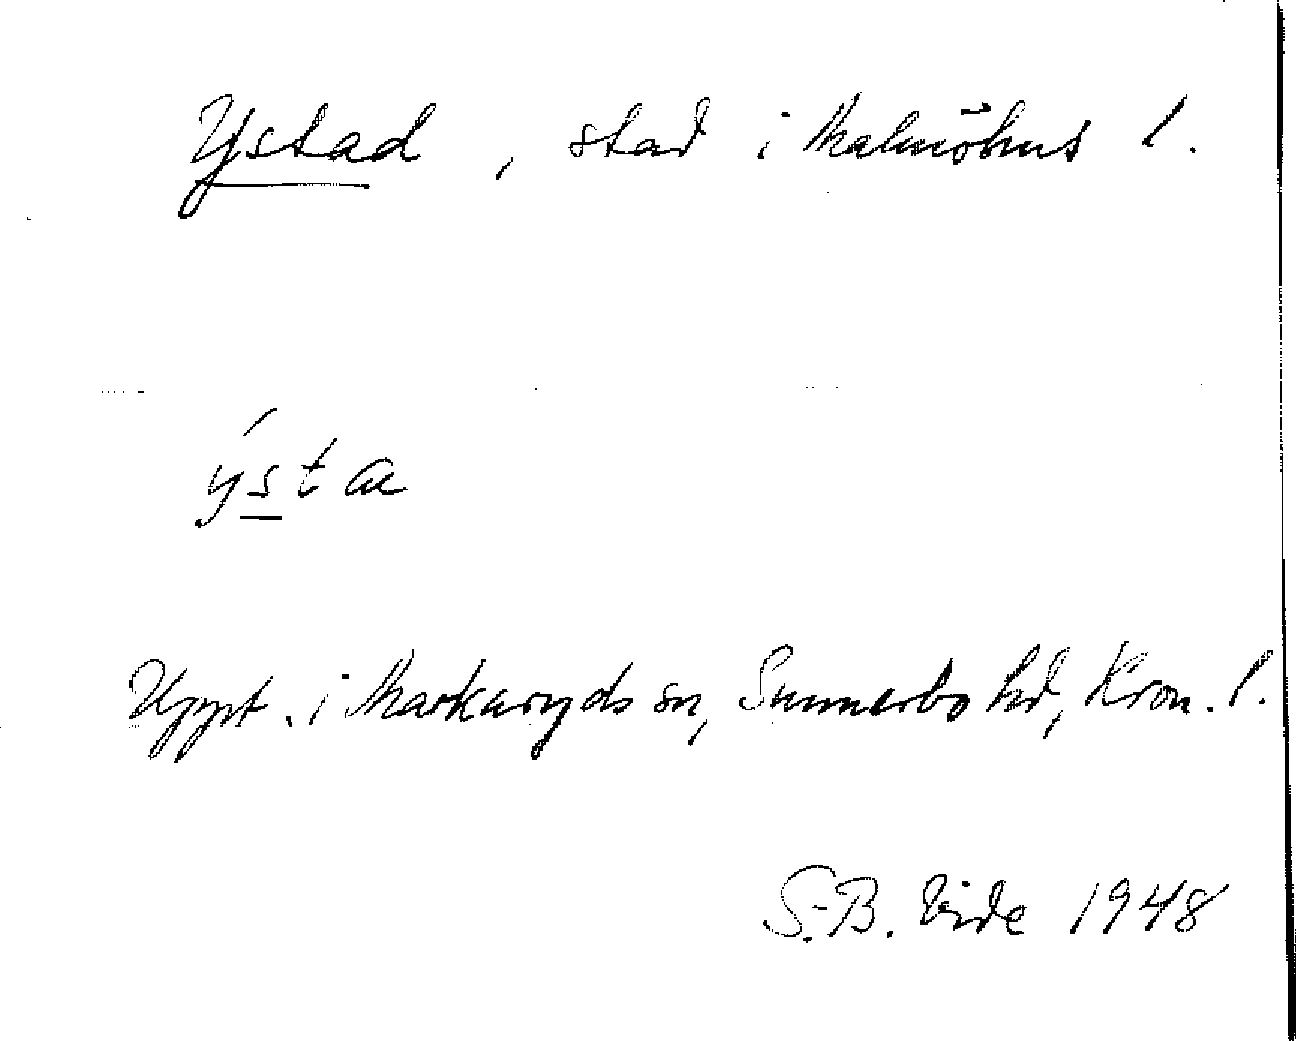 Ystad, stad i Malmöhus l.
ýsta
Uppt. i Markaryds sn, Sunnerbo hd, Kron. l.
S.-B. Vide 1948